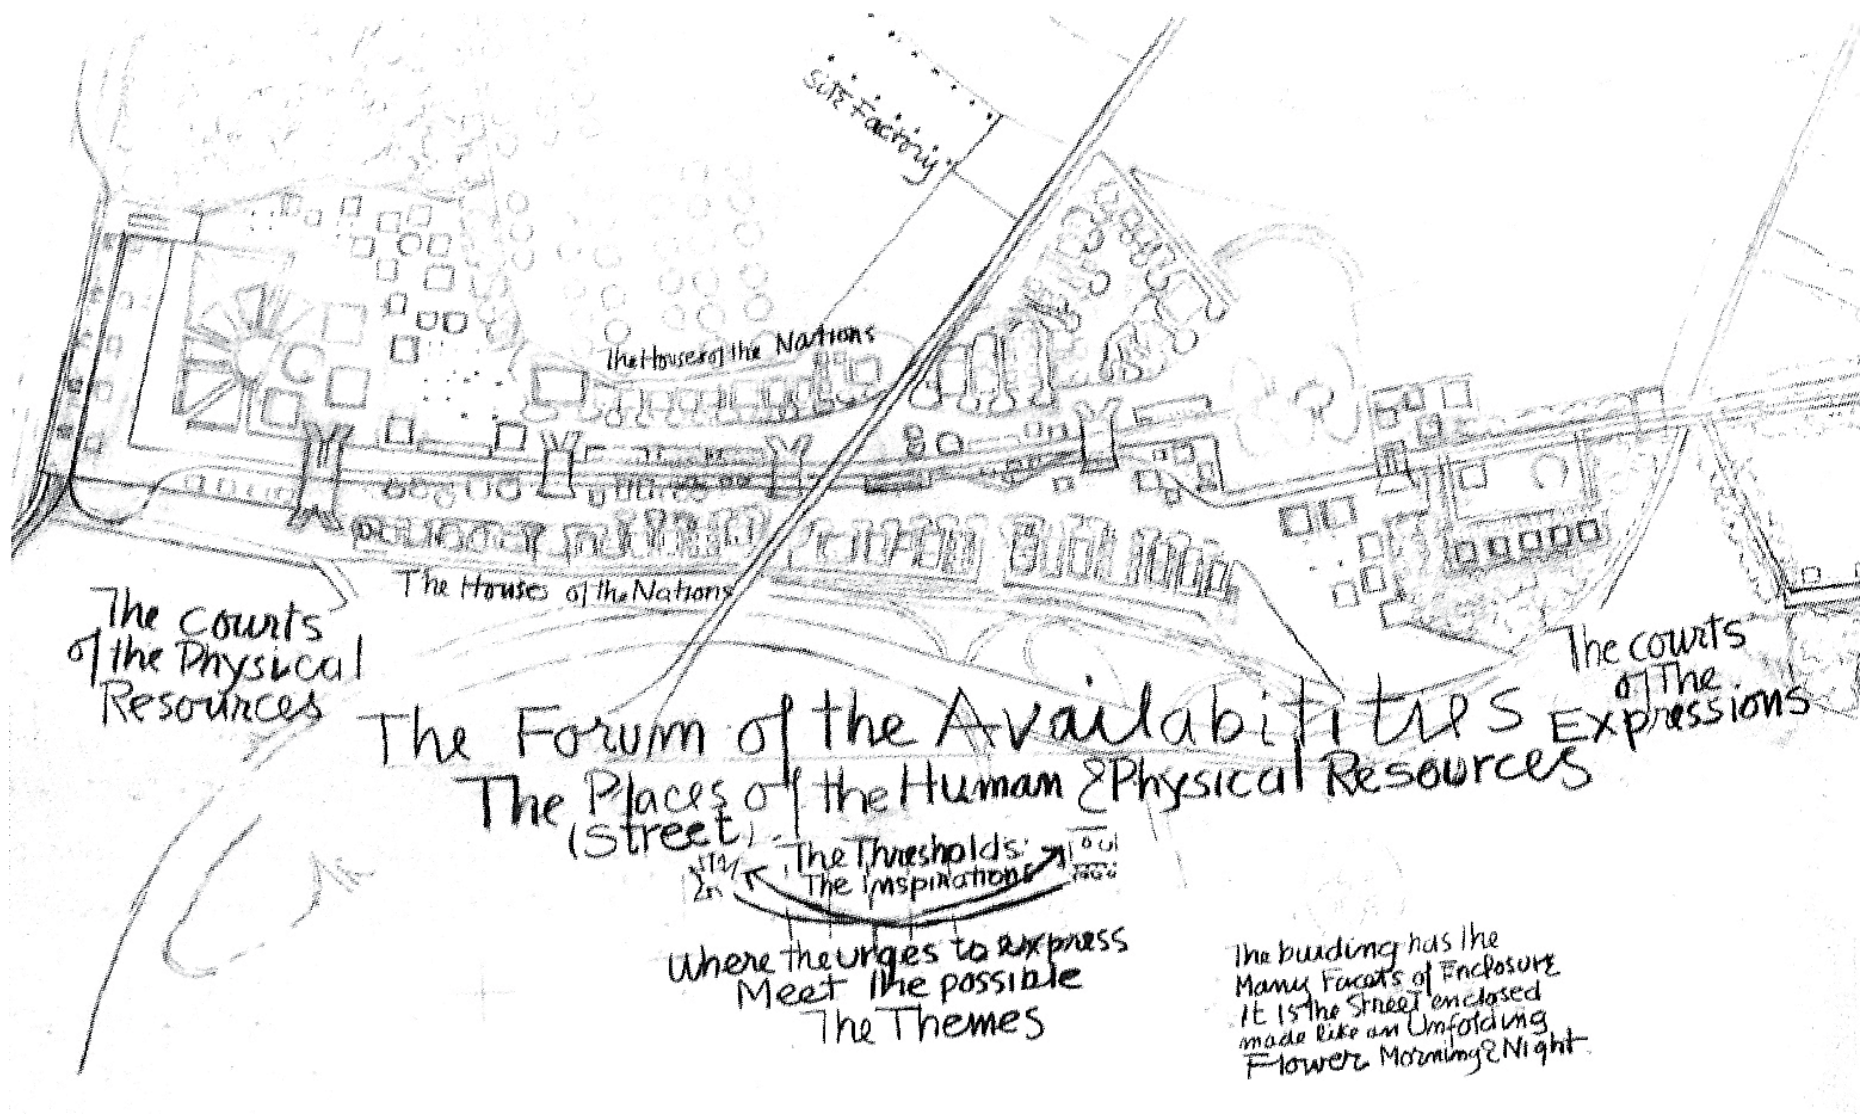 Site Factory
The Houses of the Nations
The Houses of the Nations
The Courts
of the Physical
Resources
The Courts
of The
Expressions
The Forum of the Availabilities
The Places of the Human & Physical Resources
(Street)
The Thresholds:
The Inspirations
Where the urges to express
Meet the possible
The Themes
The building has the
Many Facets of Enclosure
It is the Street enclosed
made like an Unfolding
Flower Morning & Night